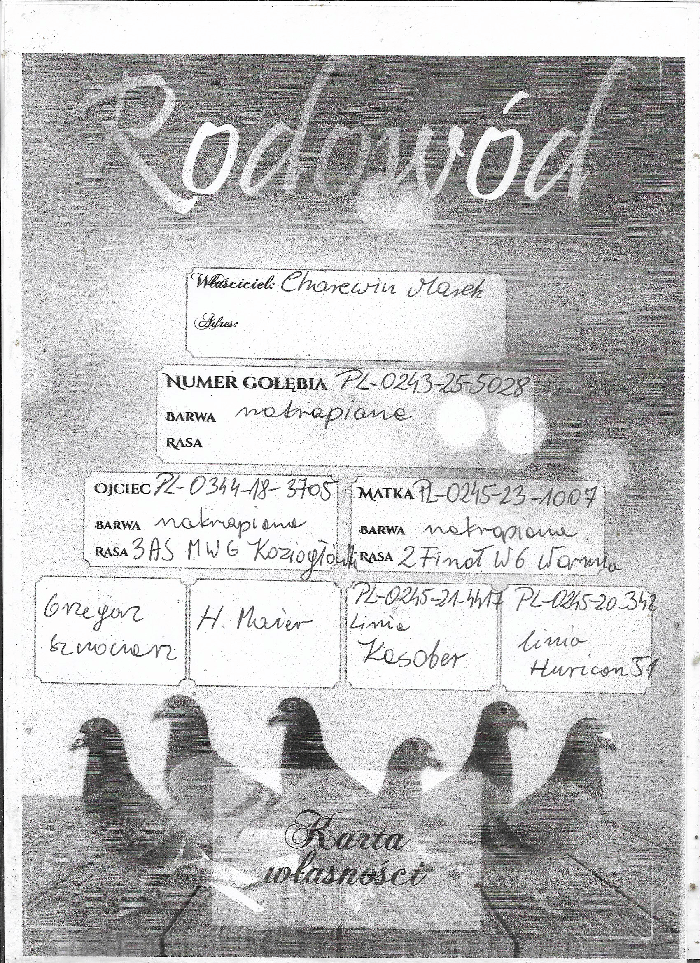 Rodowód
Właściciel: Charewin Marek
Adres:
NUMER GOŁĘBIA PL-0243-25-5028
BARWA nakrapiane
RASA
OJCIEC PL-0344-18-3705
BARWA nakrapiane
RASA 3 AS MWG Koziogłowki
MATKA PL-0245-23-1007
BARWA nakrapiana
RASA 2 Finał W6
Grzegorz
H. Maier
PL-0245-21-4417
Linia
Kasober
PL-0245-20-342
linia
Huricon 51
Karta
własności